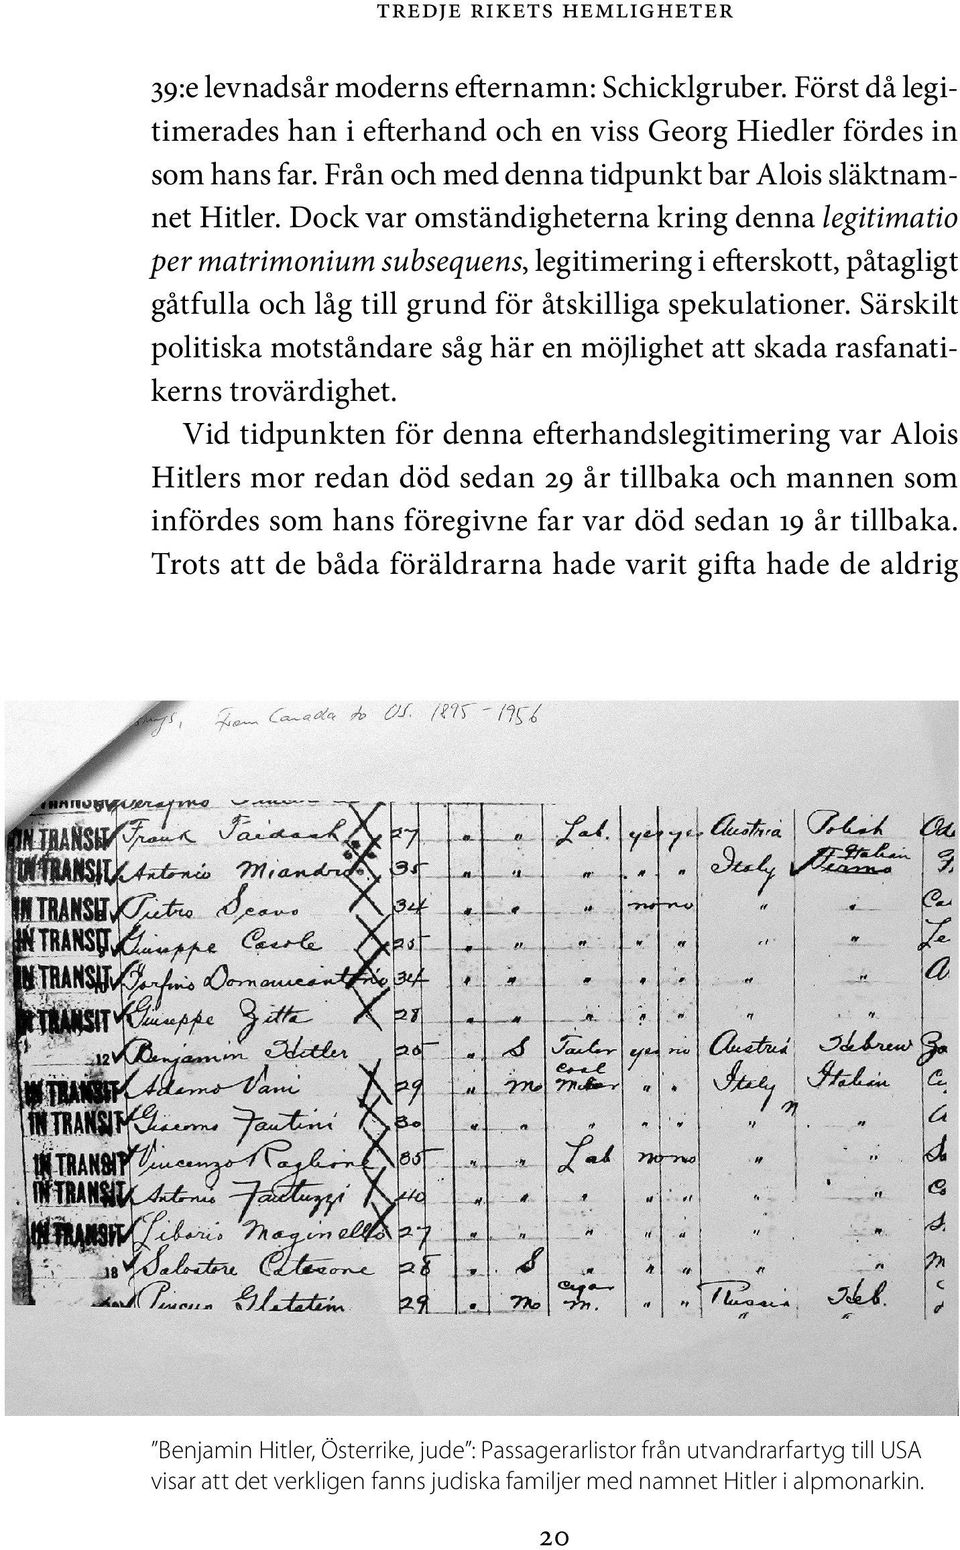 TREDJE RIKETS HEMLIGHETER
39:e levnadsår moderns efternamn: Schicklgruber. Först då legi-
timerades han i efterhand och en viss Georg Hiedler fördes in
som hans far. Från och med denna tidpunkt bar Alois släktnam-
net Hitler. Dock var omständigheterna kring denna legitimatio
per matrimonium subsequens, legitimering i efterskott, påtagligt
gåtfulla och låg till grund för åtskilliga spekulationer. Särskilt
politiska motståndare såg här en möjlighet att skada rasfanati-
kerns trovärdighet.
Vid tidpunkten för denna efterhandslegitimering var Alois
Hitlers mor redan död sedan 29 år tillbaka och mannen som
infördes som hans föregivne far var död sedan 19 år tillbaka.
Trots att de båda föräldrarna hade varit gifta hade de aldrig
From Canada to US. 1895 - 1956
IN TRANSIT Frank 27 " " Lab. yes yes Austria Polish
IN TRANSIT Antonio Miandro 35 " " " " " Italy Italian
IN TRANSIT Pietro Scavo 34 " " " no no " "
IN TRANSIT Giuseppe Casole 25 " " " " " " "
IN TRANSIT 34 " " " " " " "
IN TRANSIT Giuseppe Zitta 28 " " " " " " "
12 Benjamin Hitler 25 " S Tailor yes no Austria Hebrew
IN TRANSIT Adamo Vani 29 " m Coal Miner " " Italy Italian
IN TRANSIT Giacomo Fantini 30 " " " " " " "
IN TRANSIT Vincenzo Raglione 35 " " Lab no no " "
IN TRANSIT Antonio Fantuzzi 40 " " " " " " "
IN TRANSIT Liborio Maginello 27 " " " " " " "
18 Salvatore Catesone 28 " S " " " " "
29 " m Cigar m. " " Russia Heb.
"Benjamin Hitler, Österrike, jude": Passagerarlistor från utvandrarfartyg till USA
visar att det verkligen fanns judiska familjer med namnet Hitler i alpmonarkin.
20